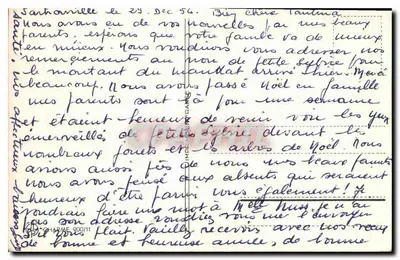 Sartrouville le 29 Dec 54. Bien chère
Nous avons eu de vos nouvelles par mes beaux
parents, espérons que votre jambe va de mieux
en mieux. Nous voudrions vous adresser nos
remerciements au nom de petite Sylvie pour
le montant du mandat arrivé hier. Merci
beaucoup. Nous avons passé Noël en famille
mes parents sont là pour une semaine
et étaient heureux de venir voir les yeux
émerveillés de petite Sylvie devant les
nombreux jouets et les arbres de Noël. Nous
avons aussi près de nous mes beaux parents
nous avons pensé aux absents qui seraient
heureux d'être parmi nous également! Je
voudrais faire une mot à Melle je n'ai
pas son adresse voudriez vous me l'envoyer
s'il vous plait. Veuillez recevoir avec nos vœux
de bonne et heureuse année, de bonne
santé, nos affectueux baisers